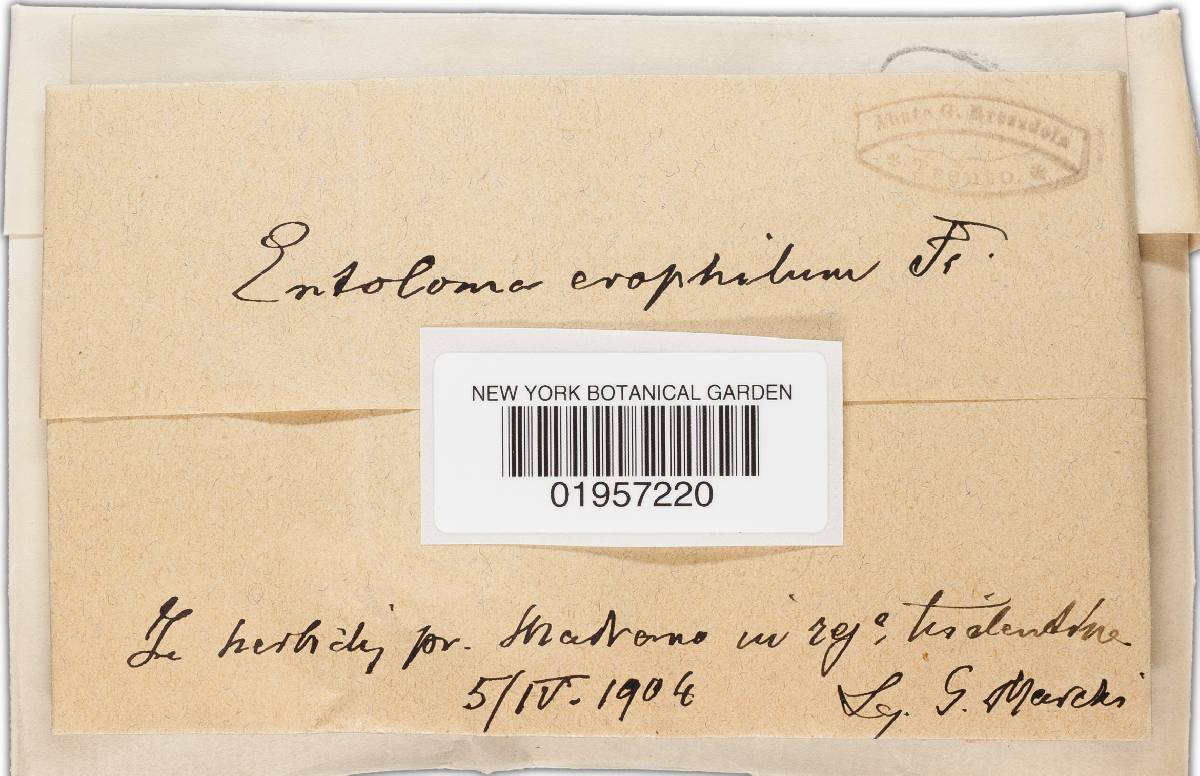 Abate G. Bresadola
* Trento. *
Entoloma erophilum Fr.
NEW YORK BOTANICAL GARDEN
01957220
In herbidis pr. Madrano in reg.e tridentina
5/IV. 1904
Leg. G. Marchi